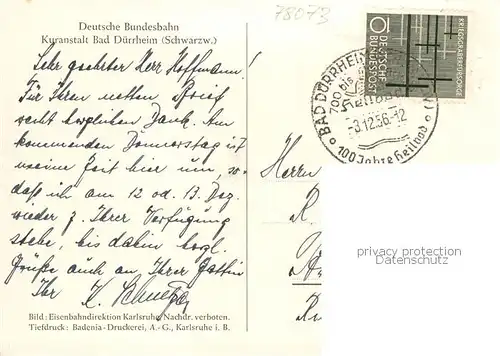 Deutsche Bundesbahn
Kuranstalt Bad Dürrheim (Schwarzw.)
78073
Sehr geehrter Herr Hoffmann!
Für Ihren netten Brief
recht herzlichen Dank. Am
kommenden Donnerstag ist
meine Zeit hier um, so-
daß ich am 12 od. 13. Dez.
wieder z. Ihrer Verfügung
stehe, bis dahin herzl.
Grüße auch an Ihrer Gattin
Ihr K.
Bild: Eisenbahndirektion Karlsruhe/Nachdr. verboten.
Tiefdruck: Badenia-Druckerei, A.-G., Karlsruhe i. B.
10
DEUTSCHE
BUNDESPOST
KRIEGSGRÄBERFÜRSORGE
BAD DÜRRHEIM
700 bis
Heilbad
-3.12.56.-12
100 Jahre Heilbad
Herrn
privacy protection